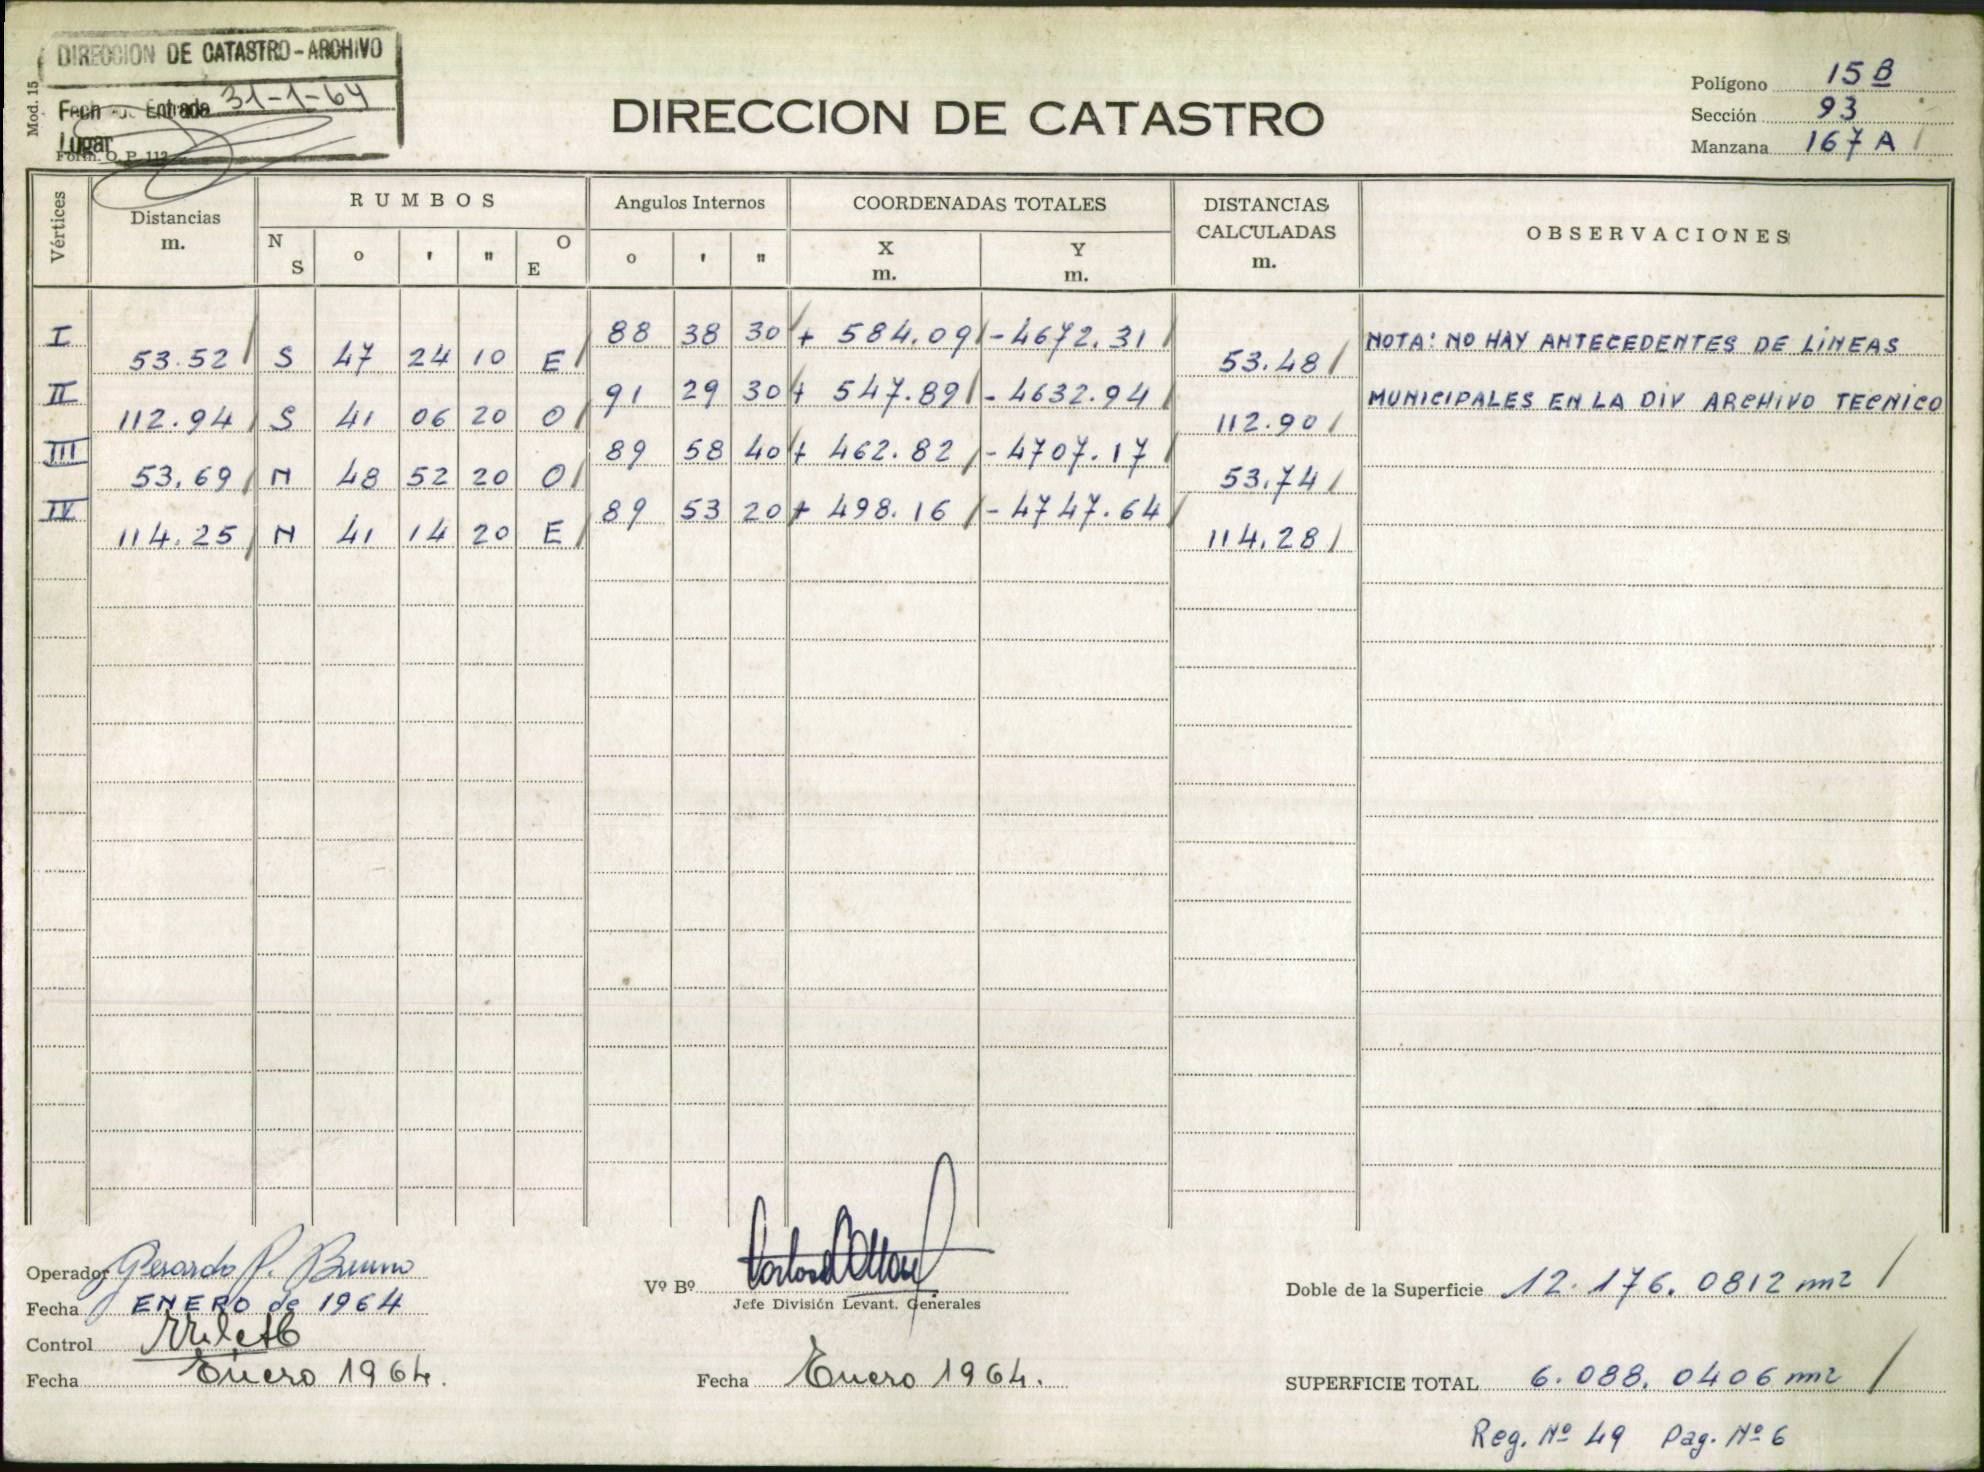 DIRECCION DE CATASTRO - ARCHIVO
Mod. 15
Entrada 31-1-64
Lugar
Form. O. P. 113
DIRECCION DE CATASTRO
Polígono 15 B
Sección 93
Manzana 167 A
Vértices Distancias m. RUMBOS Angulos Internos COORDENADAS TOTALES DISTANCIAS CALCULADAS m. OBSERVACIONES
N S o ' " O E o ' " X m. Y m.
I 88 38 30 + 584.09 - 4672.31 NOTA: NO HAY ANTECEDENTES DE LINEAS
53.52 S 47 24 10 E 53.48
II 91 29 30 + 547.89 - 4632.94 MUNICIPALES EN LA DIV ARCHIVO TECNICO
112.94 S 41 06 20 O 112.90
III 89 58 40 + 462.82 - 4707.17
53.69 N 48 52 20 O 53.74
IV 89 53 20 + 498.16 - 4747.64
114.25 N 41 14 20 E 114.28
Operador Gerardo P. Bruno
Fecha ENERO de 1964
Control
Fecha Enero 1964.
Vº Bº
Jefe División Levant. Generales
Fecha Enero 1964.
Doble de la Superficie 12.176.0812 m2
SUPERFICIE TOTAL 6.088.0406 m2
Reg. Nº 49 Pag. Nº 6